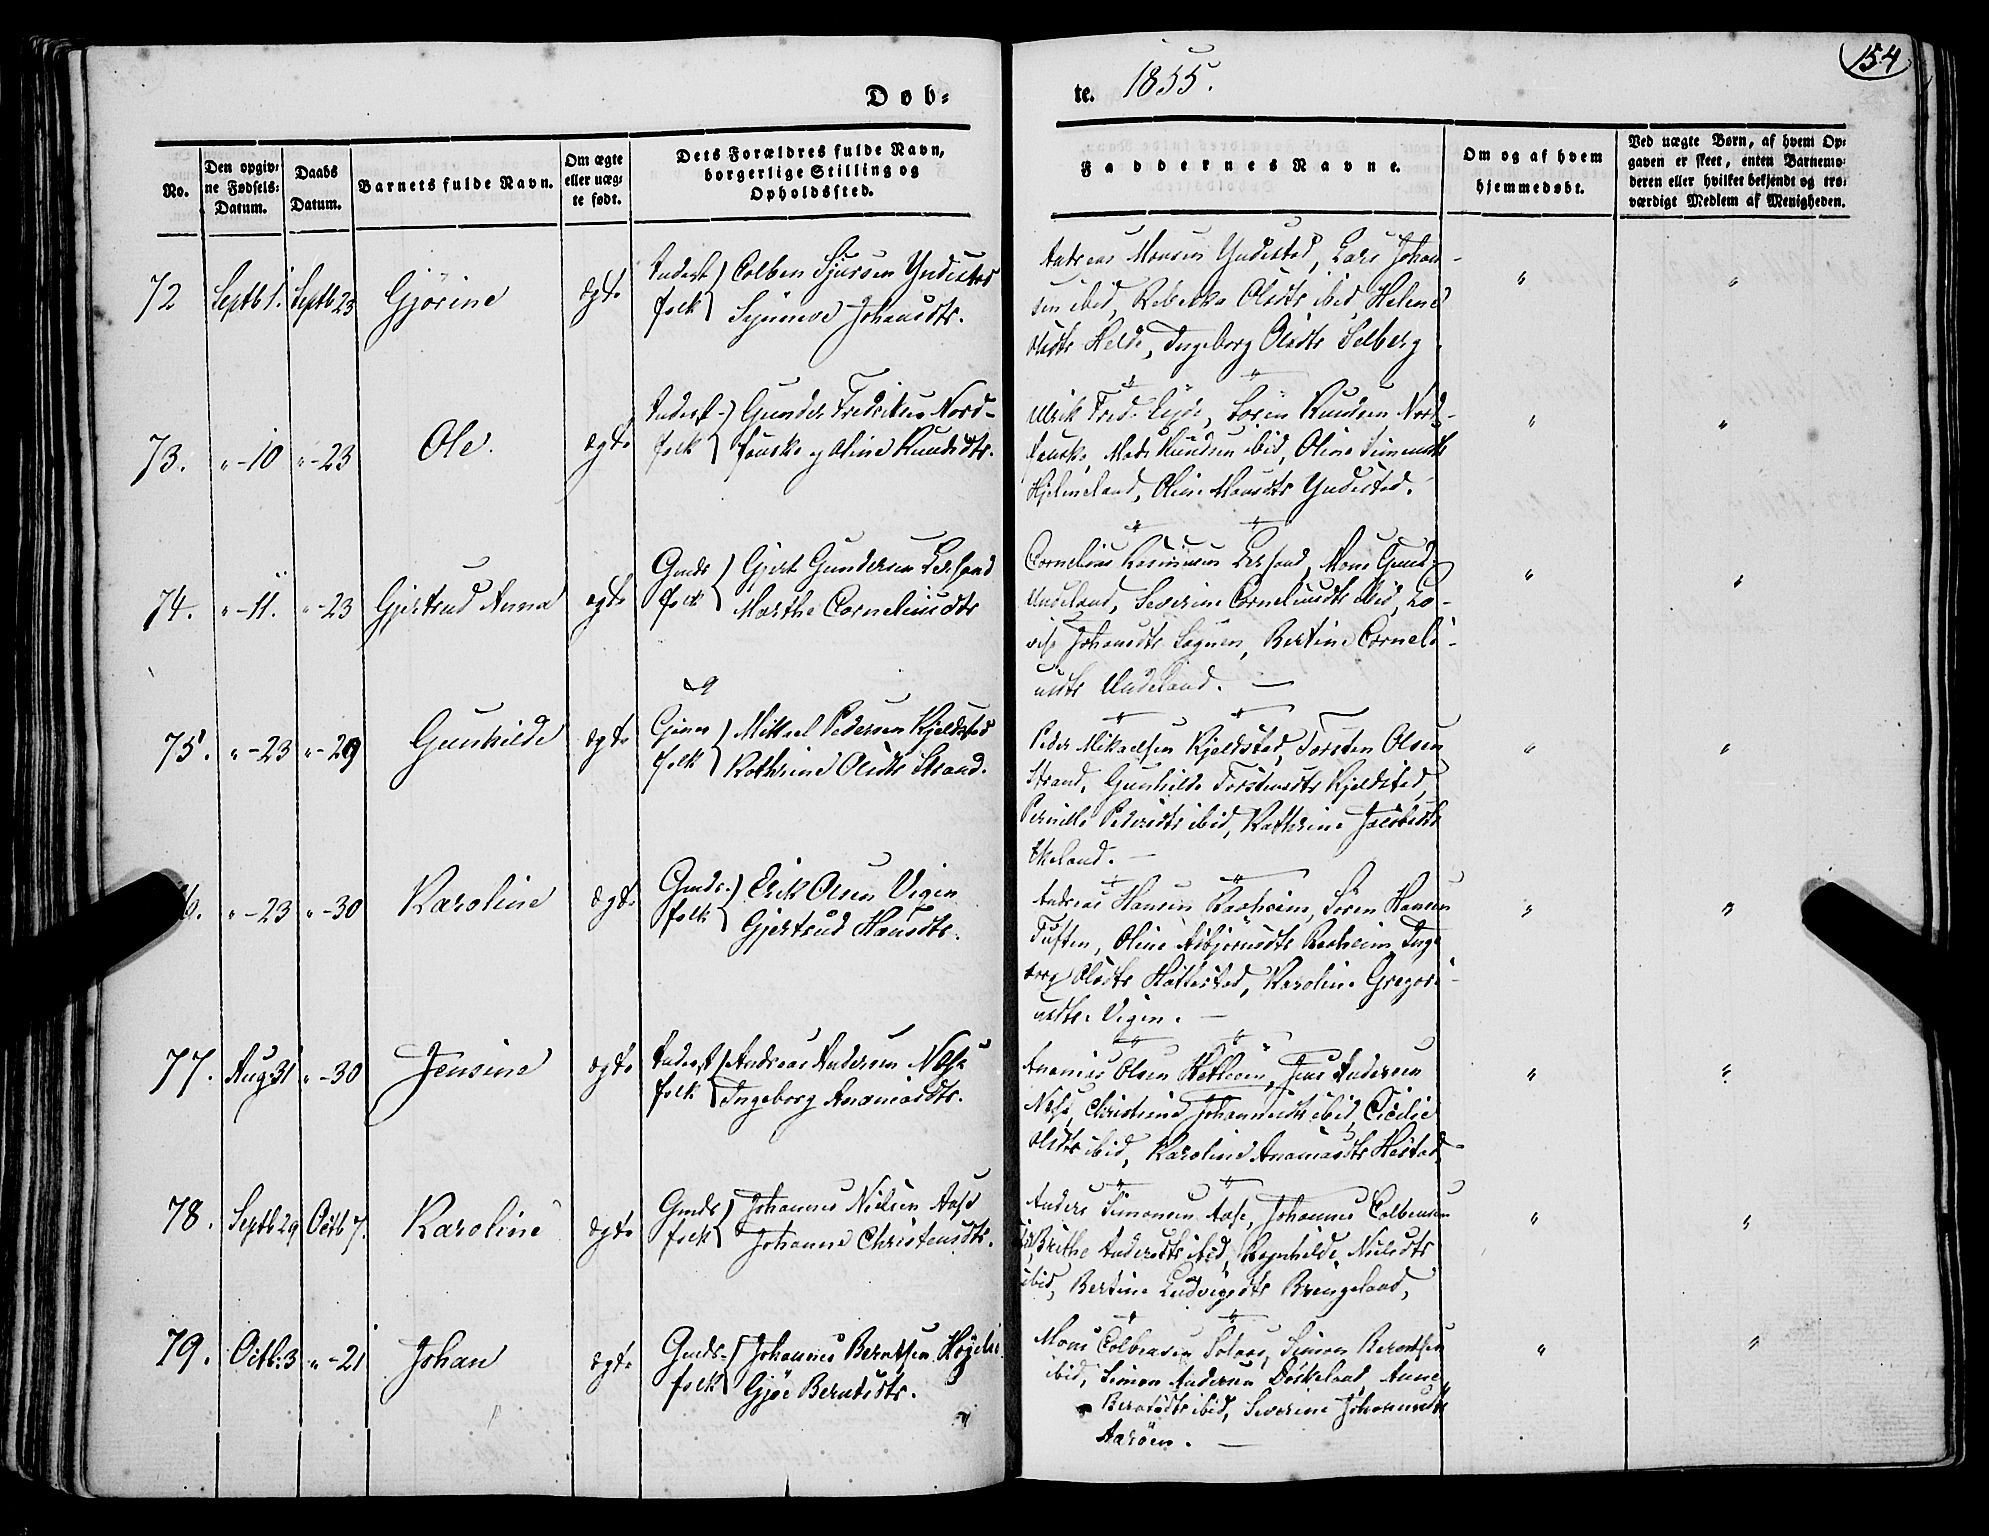 154
Døb-
te. 1855.
No.
Den opgiv-
ne Fødsels-
Datum.
Daabs
Datum.
Barnets fulde Navn.
Om ægte
eller uæg-
te født.
Dets Forældres fulde Navn,
borgerlige Stilling og
Opholdssted.
Faddernes Navne.
Om og af hvem
hjemmedøbt.
Ved uægte Børn, af hvem Op-
gaven er skeet, enten Barnemo-
deren eller hvilket bekjendt og tro-
værdigt Medlem af Menigheden.
72 Septb 1. Septb 23 Gjørine ægte
folk
Colben Sjursen Yndestad
Synneve Johansdtr.
Andreas Monsen Yndestad, Lars Johan-
sen ibid, Rebekka Olsdtr ibid, Helene
Olsdtr Helde, Ingeborg Olsdtr Solberg
" "
73. "-10 "-23 Ole. ægte
folk
Gunder Fredriksen Nord-
fauske og Oline Knudsdtr.
Ulrik Fred. Eide, Søren Knudsen Nord-
fauske, Mads Knudsen ibid, Oline Simensdtr
Hjelmeland, Oline Monsdtr Yndestad.
" "
74. "-11. "-23 Gjertrud Anna ægte
Gmds
folk
Gjert Gundersen
Marthe Corneliusdtr
Cornelius Rasmusen Mons Gund.
Severine Corneliusdtr ibid, Lo-
vise Johansdtr Sognen, Bertine Corneli-
usdtr
" "
75. "-23 "-29 Gunhilde ægte
folk
Mikkel Pedersen Kjeldstad
Kathrine Olsdtr Strand.
Peder Mikaelsen Kjeldstad, Torsten Olsen
Strand, Gunhilde Torstensdtr Kjeldstad,
Pernille Pedersdtr ibid, Kathrine Jakobsdtr
Ekeland.
" "
6. "-23 "-30 Karoline ægte
Gmds-
folk
Erik Olsen Vigen
Gjertrud Hansdtr.
Andreas Hansen Raaheim, Søren Hansen
Tuften, Oline Asbjørnsdtr Raaheim, Inge
borg Olsdtr Hattestad, Karoline Gregori-
usdtr Vigen.
" "
77. Aug. 31 "-30 Jensine ægte
folk
Andreas Andersen Næse
Ingeborg Ananiasdtr.
Ananias Olsen Jens Andersen
Næse, Christine Johannesdtr ibid, Cicilie
Olsdtr ibid, Karoline Ananiasdtr Hestad
" "
78. Septb 29 Octb 7. Karoline ægte
Gmds
folk
Johannes Nielsen Aase
Johanne Christensdtr.
Anders Simonsen Aase, Johannes Colbensen
Brithe Andersdtr ibid, Ragnhilde Nielsdtr
ibid, Bertine Ludvigsdtr Brengeland,
" "
79. Octb. 3 "-21 Johan ægte
Gmds-
folk
Johannes Berntsen
Gjøe Berntsdtr.
Mons Colbensen Simon Berentsen
ibid, Simon Andersen Døskeland, Anne
Berntsdtr ibid, Severine Johannesdtr
Aarøen.
" "